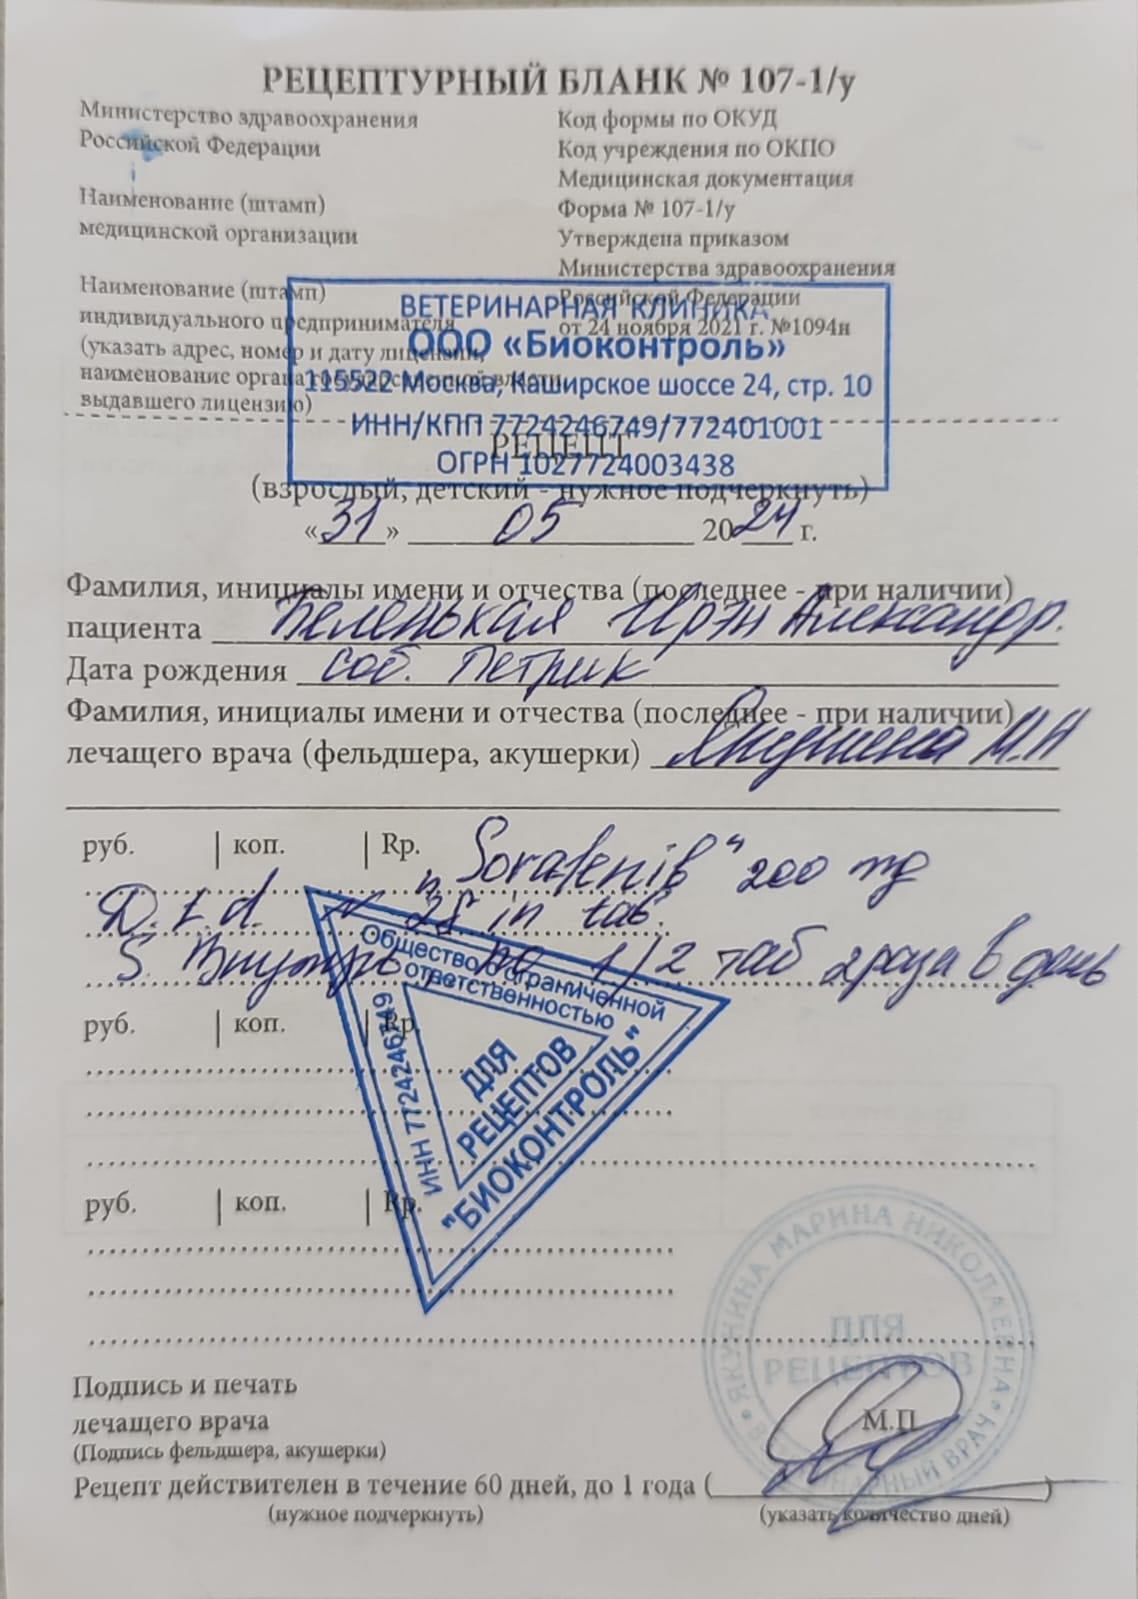 РЕЦЕПТУРНЫЙ БЛАНК № 107-1/у
Министерство здравоохранения
Российской Федерации
Наименование (штамп)
медицинской организации
Наименование (штамп)
индивидуального предпринимателя
(указать адрес, номер и дату лицензии,
наименование органа государственной власти
выдавшего лицензию)
Код формы по ОКУД
Код учреждения по ОКПО
Медицинская документация
Форма № 107-1/у
Утверждена приказом
Министерства здравоохранения
Российской Федерации
от 24 ноября 2021 г. №1094н
ВЕТЕРИНАРНАЯ КЛИНИКА
ООО «Биоконтроль»
115522 Москва, Каширское шоссе 24, стр. 10
ИНН/КПП 7724246749/772401001
ОГРН 1027724003438
РЕЦЕПТ
(взрослый, детский - нужное подчеркнуть)
«31» 05 2024 г.
Фамилия, инициалы имени и отчества (последнее - при наличии)
пациента Беленькая Ирэн Александр.
Дата рождения соб. Петрик
Фамилия, инициалы имени и отчества (последнее - при наличии)
лечащего врача (фельдшера, акушерки) М.Н
руб. | коп. | Rp. "Sorafenib" 200 mg
D.t.d. N 28 in tab.
S. Внутрь по 1/2 таб 2 раза в день
руб. | коп. | Rp.
руб. | коп. | Rp.
Общество с ограниченной
ответственностью
"БИОКОНТРОЛЬ"
ИНН 7724246749
ДЛЯ
РЕЦЕПТОВ
ЯКУНИНА МАРИНА НИКОЛАЕВНА • ВЕТЕРИНАРНЫЙ ВРАЧ •
ДЛЯ
РЕЦЕПТОВ
Подпись и печать
лечащего врача
(Подпись фельдшера, акушерки)
М.П
Рецепт действителен в течение 60 дней, до 1 года (          )
(нужное подчеркнуть)
(указать количество дней)